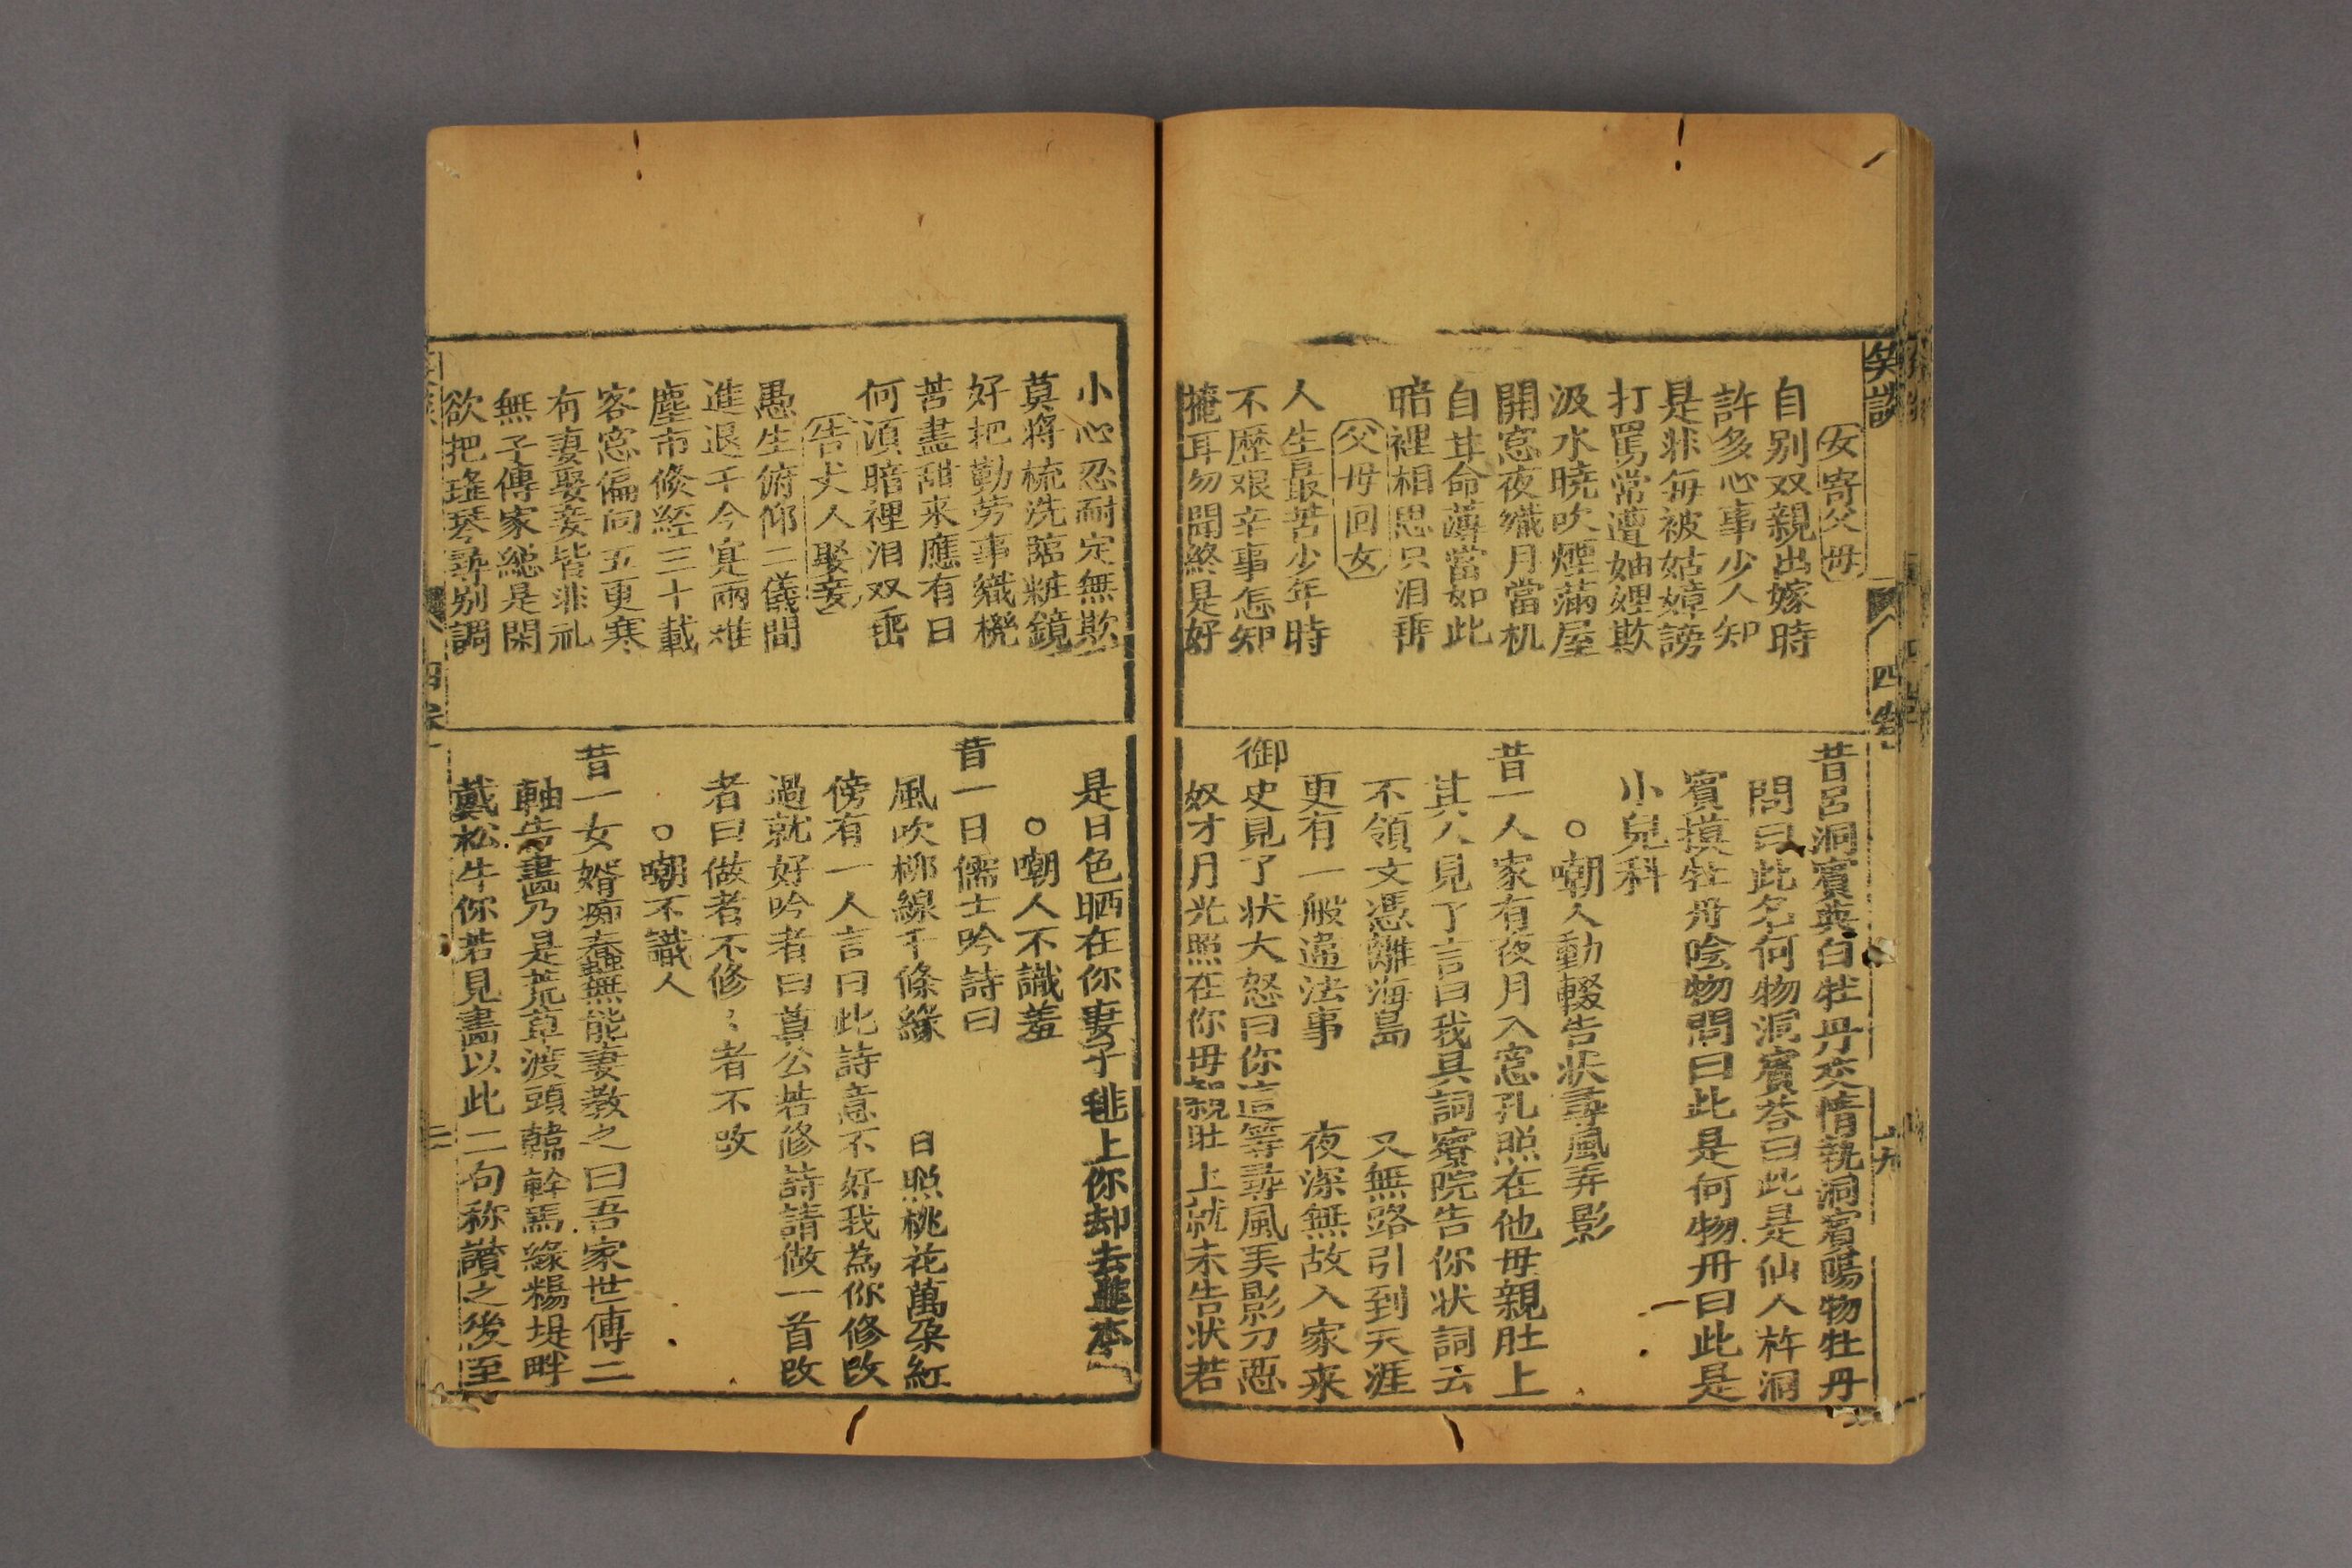 笑談
四卷
女寄父母
自别双親出嫁時
許多心事少人知
是非每被姑嫜謗
打罵常遭妯娌欺
汲水曉吹煙滿屋
開窓夜織月當机
自甘命薄當如此
暗裡相思只泪垂
父母回女
人生最苦少年時
不歷艰辛事怎知
掩耳勿聞終是好
昔呂洞賓與白牡丹交情執洞賓陽物牡丹
問曰此名何物洞賓荅曰此是仙人杵洞
賓摸牡丹陰物問曰此是何物丹曰此是
小兒科
○嘲人動輟告状尋風弄影
昔一人家有夜月入窓孔照在他毋親肚上
其人見了言曰我具詞察院告你状詞云
不領文憑離海島 又無路引到天涯
更有一般違法事 夜深無故入家来
御史見了状大怒曰你這等尋風弄影刀恶
奴才月光照在你毋親肚上就来告状若
小心忍耐定無欺
莫將梳洗臨粧鏡
好把勤劳事織機
苦盡甜来應有日
何須暗裡泪双垂
告丈人娶妾
愚生俯仰二儀間
進退于今寔兩难
塵市倏經三十載
客窓偏向五更寒
有妻娶妾皆非礼
無子傳家総是閑
欲把瑤琴尋别調
是日色晒在你妻子𣬉上你却去
○嘲人不識羞
昔一日儒士吟詩曰
風吹柳線千條緑 日照桃花萬朶紅
傍有一人言曰此詩意不好我為你修改
過就好吟者曰尊公若修詩請做一首改
者曰做者不修〻者不改
○嘲不識人
昔一女婿痴蠢無能妻教之曰吾家世傳二
軸告畫乃是荒草渡頭韓幹馬緑楊堤畔
戴松牛你若見畫以此二句称讃之後至